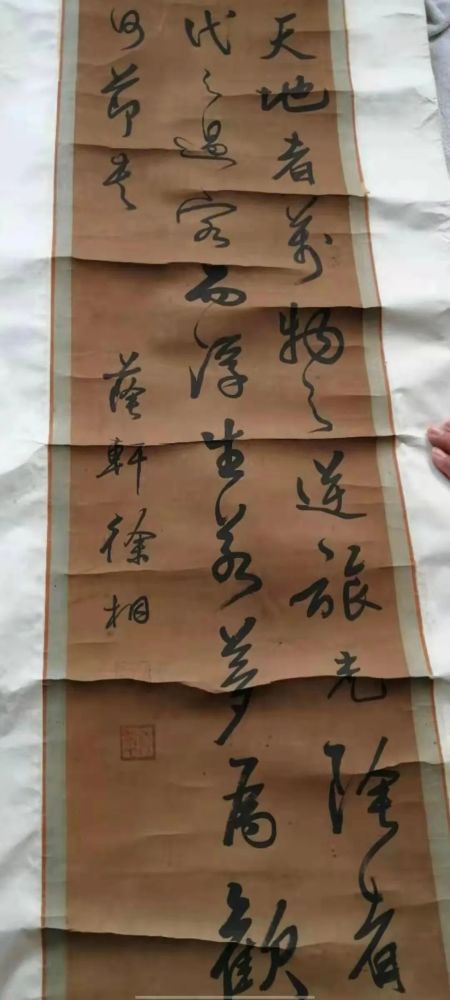 天地者萬物之逆旅光陰者
代之過客而浮生若夢為歡
何節書
蔭軒徐桐